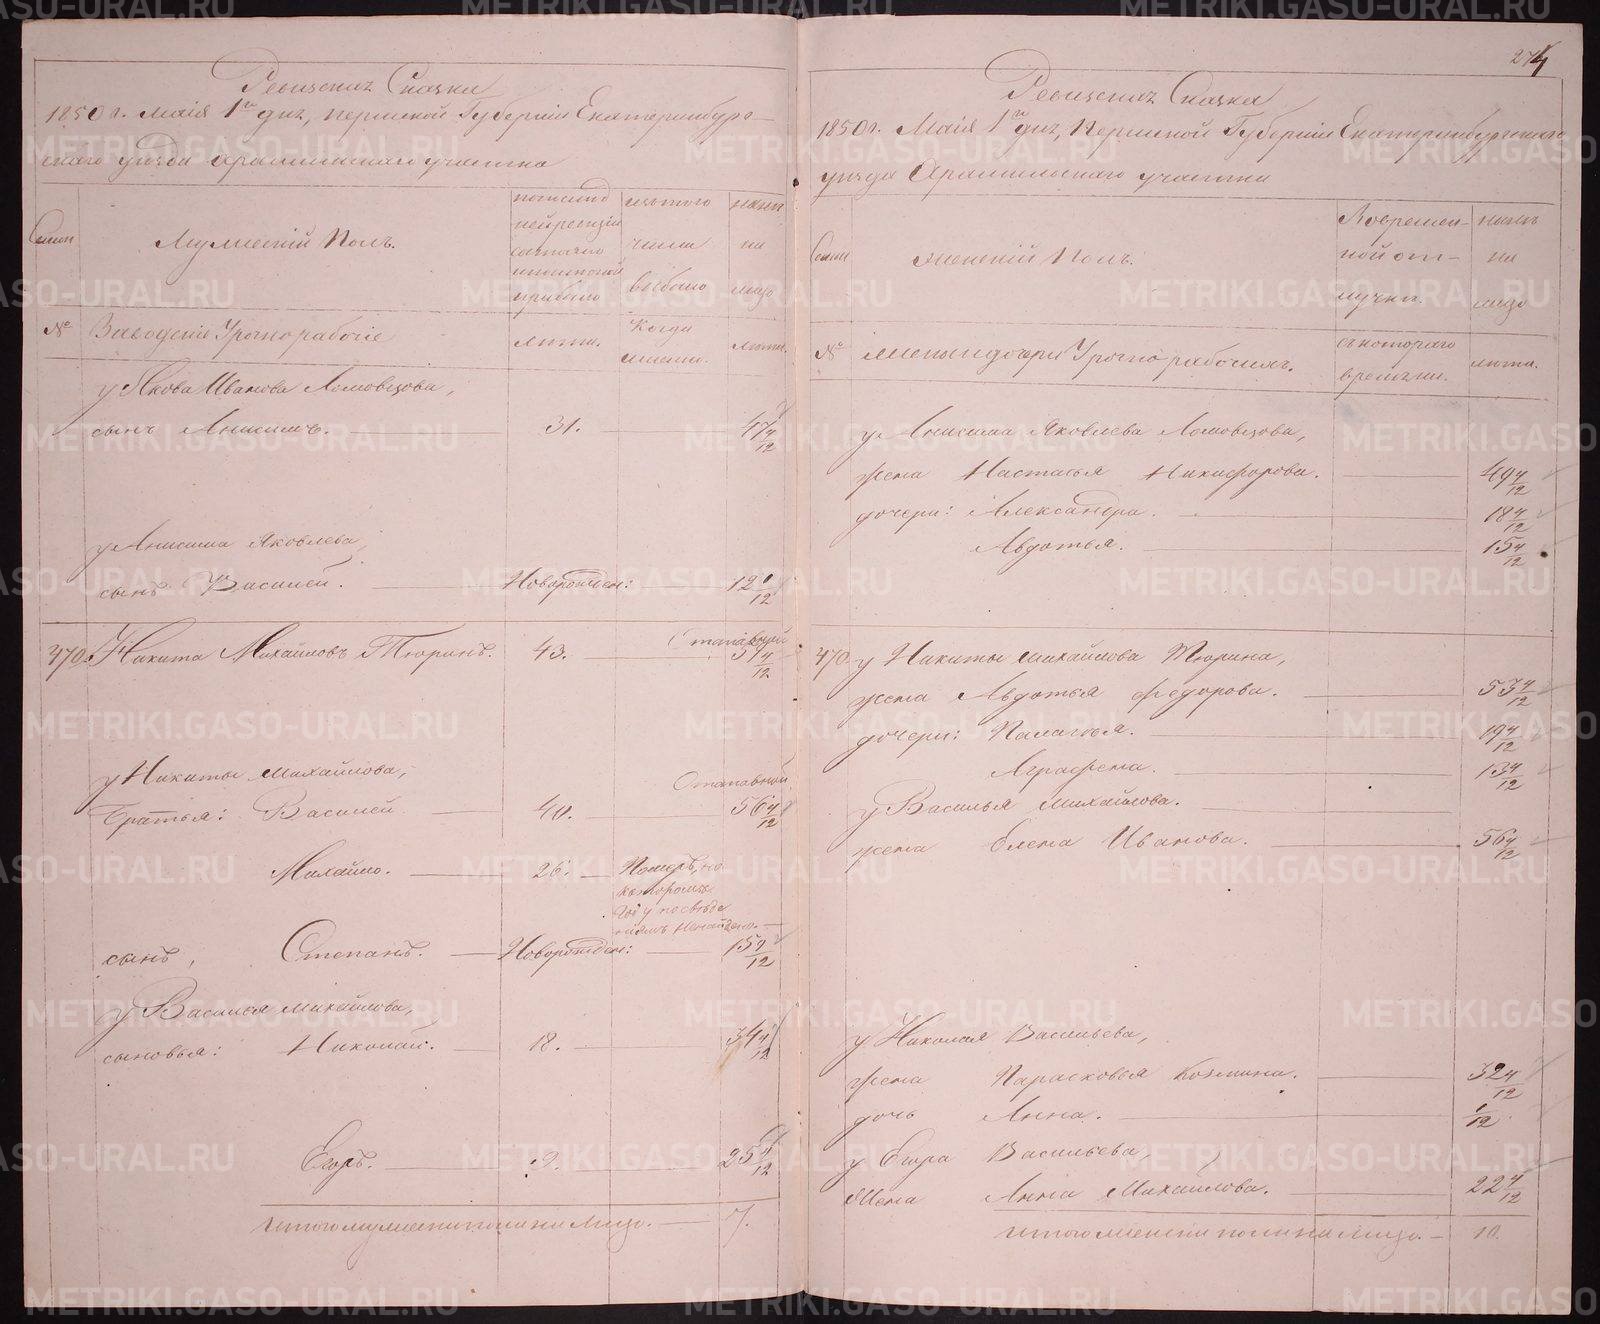 Ревизския Сказка
1850 г. Маія 1го дня, Пермской Губерніи Екатеринбург-
скаго уезда Арамильскаго участка
Семьи
Мужескій Полъ.
по последней ревизіи состояло и после той прибыло
изъ того числа выбыло
ныне на лицо
№
Заводские Урочнорабочіе
лета.
Когда именно.
лета.
у Якова Иванова Ломовцова,
сынъ Анисимъ. 31. 47 4/12
у Анисима Яковлева,
сынъ Василей. Новорожден: 12 1/12
470. Никита Михайловъ Тюринъ. 43. Отставной
4/12
у Никиты Михайлова,
Отставной
братья: Василей 40. 56 4/12
Михайло. 26. Померъ, но
въ которомъ
году по сведе
ніямъ Ненайдено.
сынъ, Степанъ. Новорожден: 15 4/12
у Василья Михайлова,
сыновья: Николай. 18. 34 4/12
Егоръ. 9. 25 4/12
Итого мужеска пола на Лицо. 7.
274
Ревизския Сказка
1850 г. Маія 1го дня, Пермской Губерніи Екатеринбургскаго
уезда Арамильскаго участка
Семьи
Женскій Полъ.
Во времен-
ной от-
лучки.
ныне
на
лицо
№
Жены и дочери Урочно рабочихъ.
съ котораго
времени.
лета.
у Анисима Яковлева Ломовцова,
жена Настасья Никифорова. 49 4/12
дочери: Александра. 18 4/12
Авдотья. 15 4/12
470 у Никиты Михайлова Тюрина,
жена Авдотья Федорова. 53 4/12
дочери: Палагея. 19 4/12
Аграфена. 13 4/12
у Василья Михайлова.
жена Елена Иванова. 56 4/12
у Николая Васильева,
жена Парасковья Козмина. 32 4/12
дочь Анна. 1/12
у Егора Васильева,
Жена Анна Михайлова. 22 4/12
Итого женска пола на Лицо. 10.
METRIKI.GASO-URAL.RU